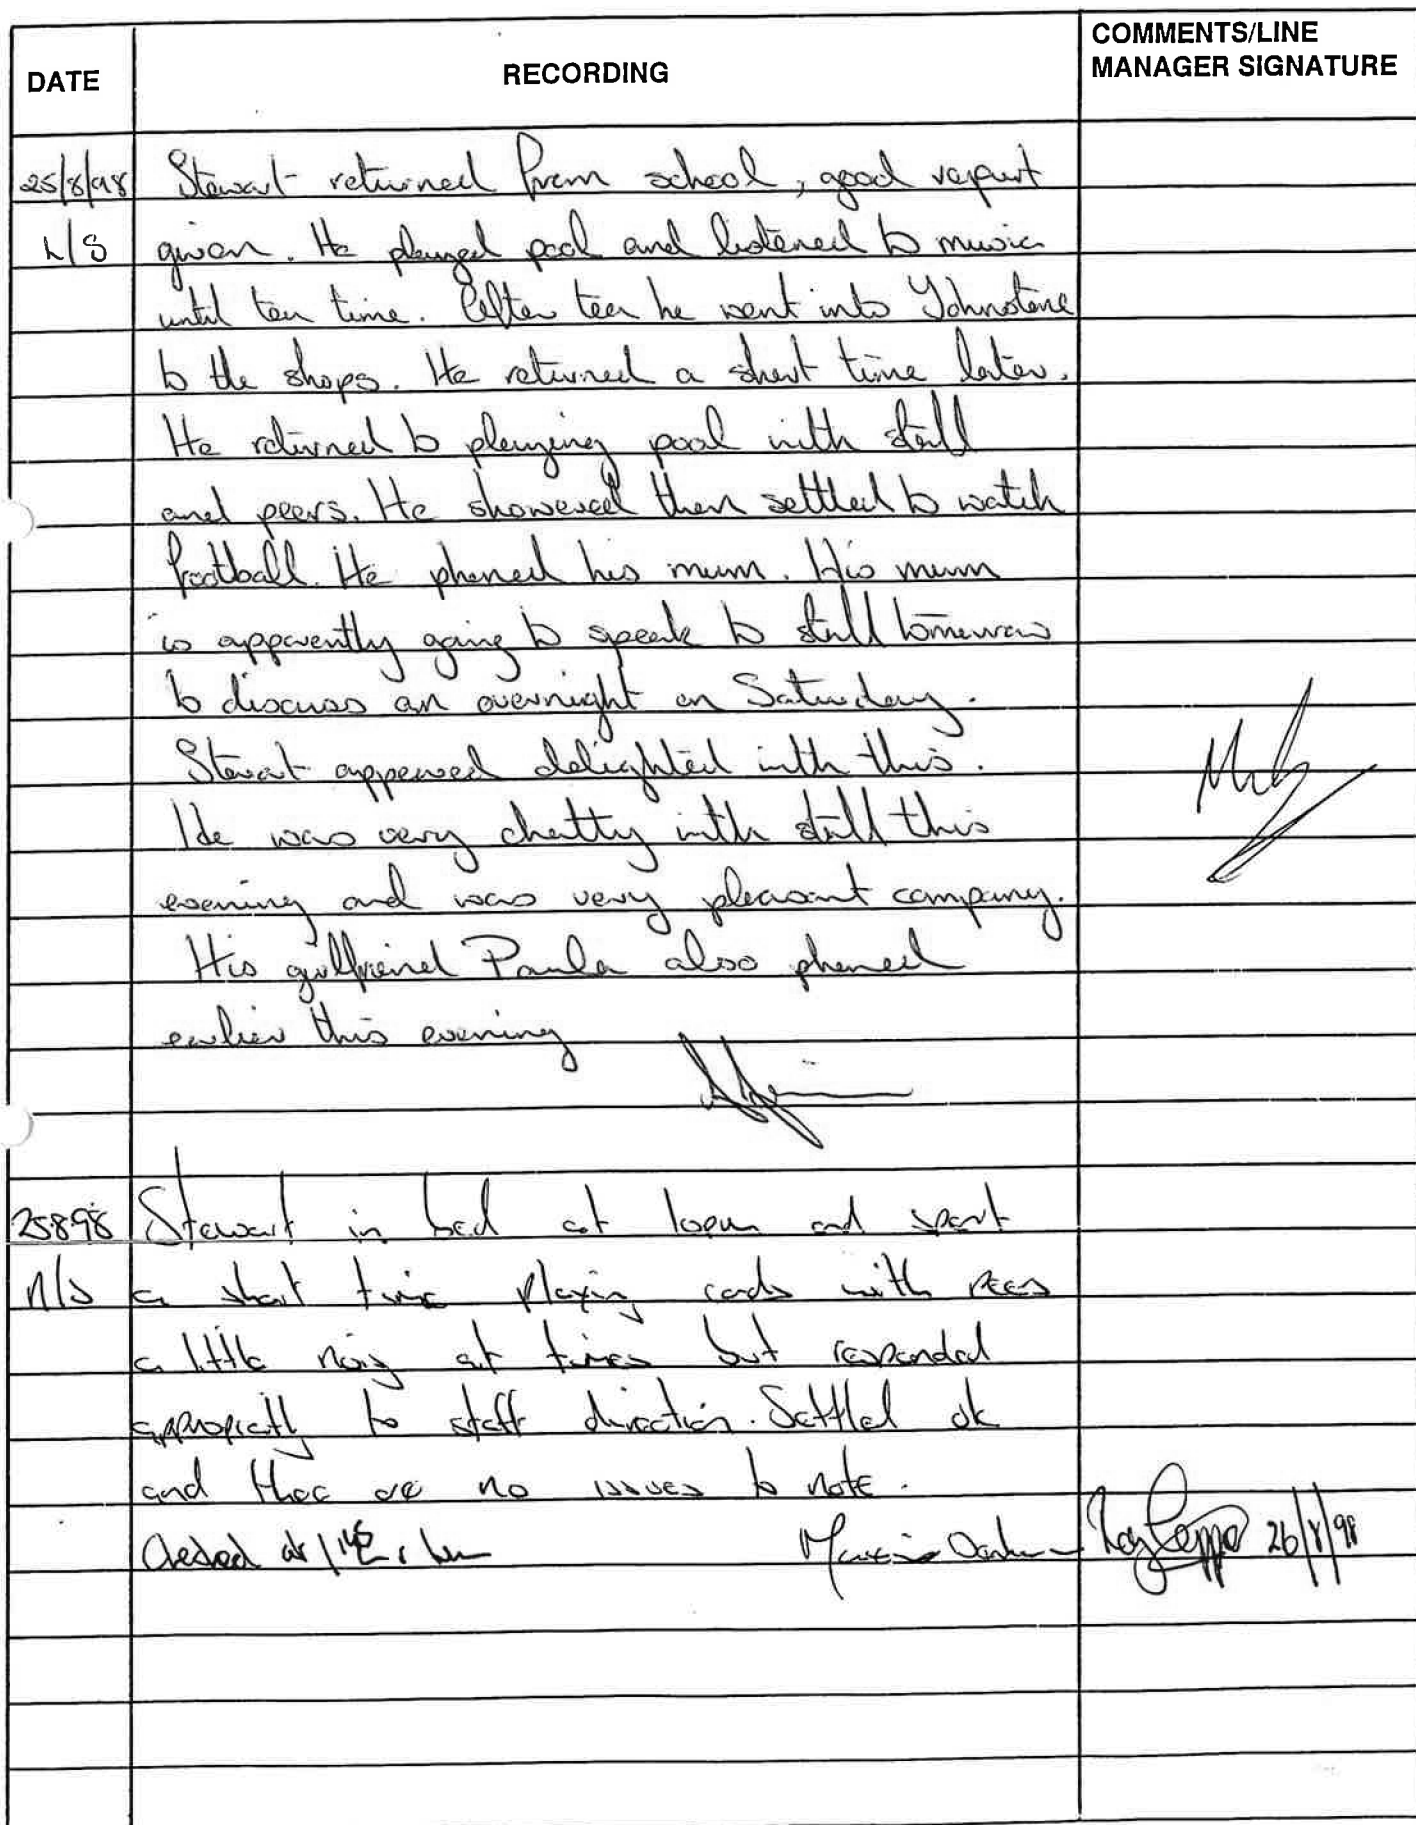 DATE
RECORDING
COMMENTS/LINE
MANAGER SIGNATURE
25/8/98 Stewart returned from school, good report
L/S given. He played pool and listened to music
until tea time. After tea he went into Johnstone
to the shops. He returned a short time later.
He returned to playing pool with staff
and peers. He showered then settled to watch
football. He phoned his mum. His mum
is apparently going to speak to staff tomorrow
to discuss an overnight on Saturday.
Stewart appeared delighted with this.
He was very chatty with staff this
evening and was very pleasant company.
His girlfriend Paula also phoned
earlier this evening
25898 Stewart in bed at 10pm and spent
N/S a short time playing cards with peers
a little noisy at times but responded
appropriatly to staff direction. Settled ok
and there are no issues to note.
at
26/8/98